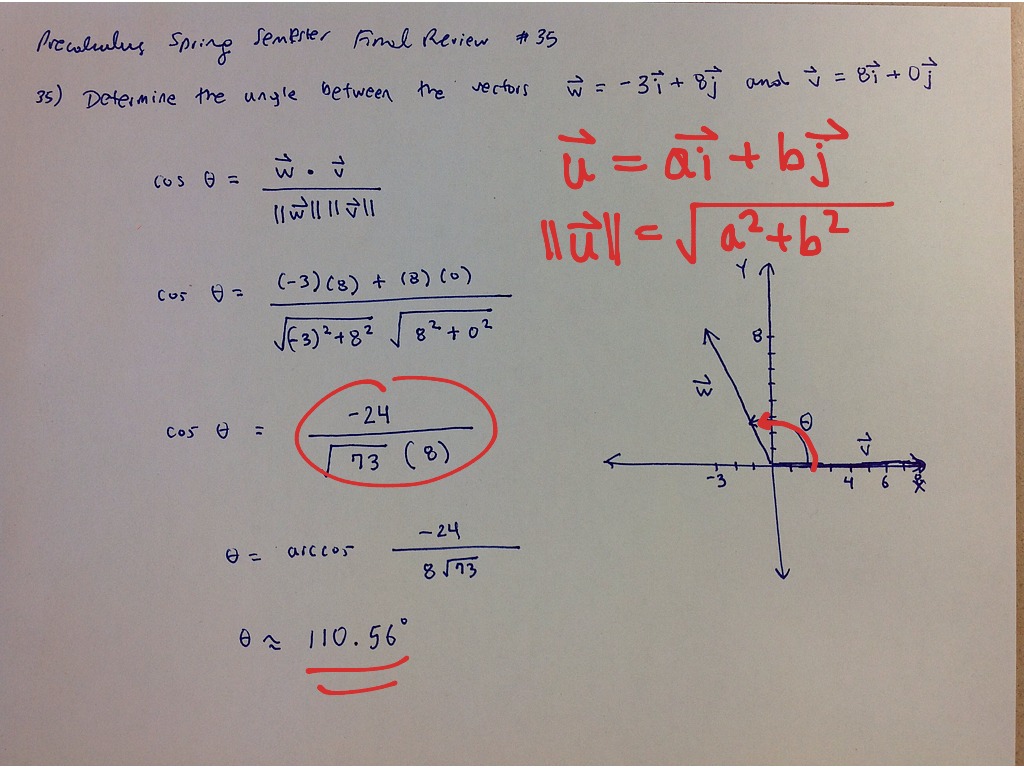 Precalculus Spring Semester Final Review #35
35) Determine the angle between the vectors w⃗ = -3i⃗ + 8j⃗ and v⃗ = 8i⃗ + 0j⃗
u⃗ = ai⃗ + bj⃗
||u⃗|| = √(a²+b²)
cos θ = (w⃗ • v⃗) / (||w⃗|| ||v⃗||)
cos θ = ((-3)(8) + (8)(0)) / (√((-3)²+8²) √(8²+0²))
cos θ = -24 / (√73 (8))
θ = arccos -24 / (8√73)
θ ≈ 110.56°
Y
8
w⃗
θ
v⃗
-3 4 6 8
X